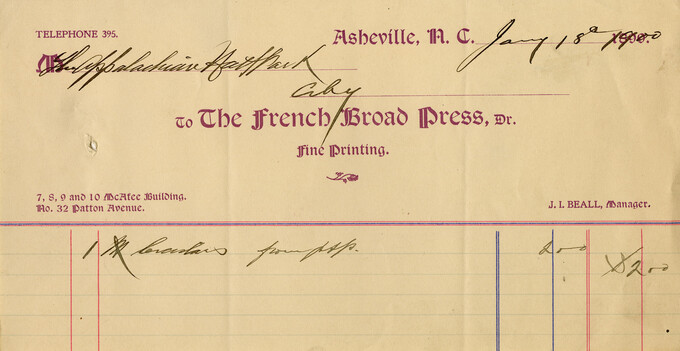 TELEPHONE 395.
Asheville, N. C. Jany 18th 1900.
Appalachian Natl Park
City
To The French Broad Press, Dr.
Fine Printing.
7, 8, 9 and 10 McAfee Building.
No. 32 Patton Avenue.
J. I. BEALL, Manager.
1 M Circulars 2 00
$2 00